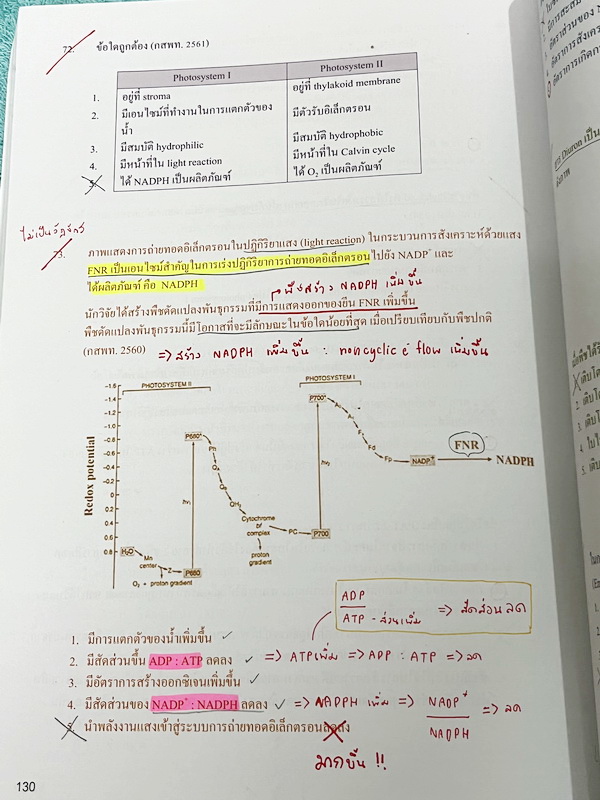 72. ข้อใดถูกต้อง (กสพท. 2561)
Photosystem I Photosystem II
1. อยู่ที่ stroma อยู่ที่ thylakoid membrane
2. มีเอนไซม์ที่ทำงานในการแตกตัวของน้ำ มีตัวรับอิเล็กตรอน
3. มีสมบัติ hydrophilic มีสมบัติ hydrophobic
4. มีหน้าที่ใน light reaction มีหน้าที่ใน Calvin cycle
5. ได้ NADPH เป็นผลิตภัณฑ์ ได้ O₂ เป็นผลิตภัณฑ์
ไม่เป็นวัฏจักร
73. ภาพแสดงการถ่ายทอดอิเล็กตรอนในปฏิกิริยาแสง (light reaction) ในกระบวนการสังเคราะห์ด้วยแสง
FNR เป็นเอนไซม์สำคัญในการเร่งปฏิกิริยาการถ่ายทอดอิเล็กตรอนไปยัง NADP⁺ และ
ได้ผลิตภัณฑ์ คือ NADPH
สร้าง NADPH เพิ่มขึ้น
นักวิจัยได้สร้างพืชดัดแปลงพันธุกรรมที่มีการแสดงออกของยีน FNR เพิ่มขึ้น
พืชดัดแปลงพันธุกรรมนี้มีโอกาสที่จะมีลักษณะในข้อใดน้อยที่สุด เมื่อเปรียบเทียบกับพืชปกติ
(กสพท. 2560) => สร้าง NADPH เพิ่มขึ้น : noncyclic e⁻ flow เพิ่มขึ้น
PHOTOSYSTEM II PHOTOSYSTEM I
Redox potential
-1.6
-1.4
-1.2
-1.0
-0.8
-0.6
-0.4
-0.2
0
0.2
0.4
0.6
0.8
H₂O Mn center Z P680
O₂ + proton gradient
hν₁ P680*
Ph
QH₂
Cytochrome bf complex
proton gradient
PC P700
hν₂ P700*
Fd
Fp
NADP⁺ FNR NADPH
ADP
ATP - ส่วนเพิ่ม => สัดส่วน ลด
1. มีการแตกตัวของน้ำเพิ่มขึ้น ✓
2. มีสัดส่วนขึ้น ADP : ATP ลดลง ✓ => ATP เพิ่ม => ADP : ATP => ลด
3. มีอัตราการสร้างออกซิเจนเพิ่มขึ้น ✓
4. มีสัดส่วนของ NADP⁺ : NADPH ลดลง ✓ => NADPH เพิ่ม => NADP⁺ / NADPH => ลด
5. นำพลังงานแสงเข้าสู่ระบบการถ่ายทอดอิเล็กตรอนลดลง
มากขึ้น !!
130